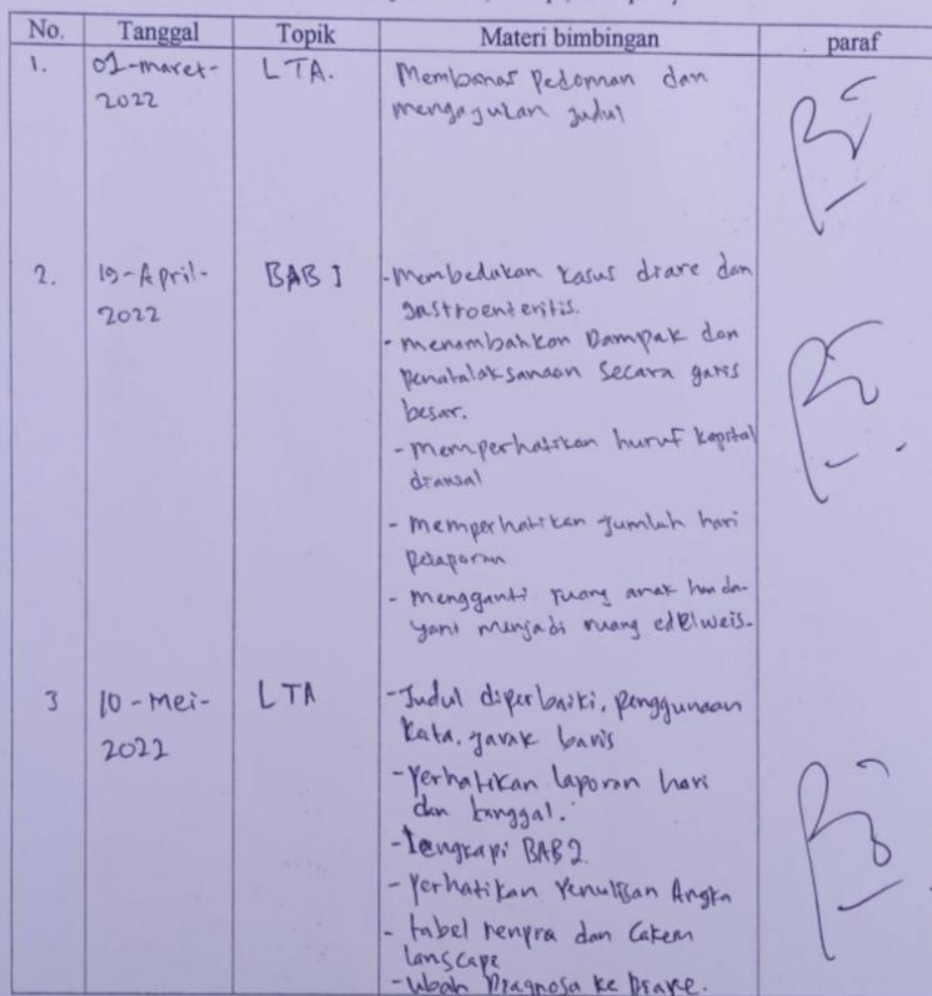 No. Tanggal Topik Materi bimbingan paraf
1. 01-maret- LTA. Membahas Pedoman dan
2022 mengajukan Judul
2. 19-April- BAB I -Membedakan kasus diare dan
2022 gastroenteritis.
- menambahkan Dampak dan
Penatalaksanaan Secara garis
besar.
- memperhatikan huruf kapital
diawal
- memperhatikan Jumlah hari
Pelaporan
- mengganti ruang anak handa-
yani menjadi ruang edelweis.
3 10-mei- LTA -Judul diperbaiki, Penggunaan
2022 kata, jarak baris
-Perhatikan laporan hari
dan tanggal.
-Lengkapi BAB 2.
- Perhatikan Penulisan Angka
- tabel renpra dan Catem
lanscape
- ubah Diagnosa ke Diare.